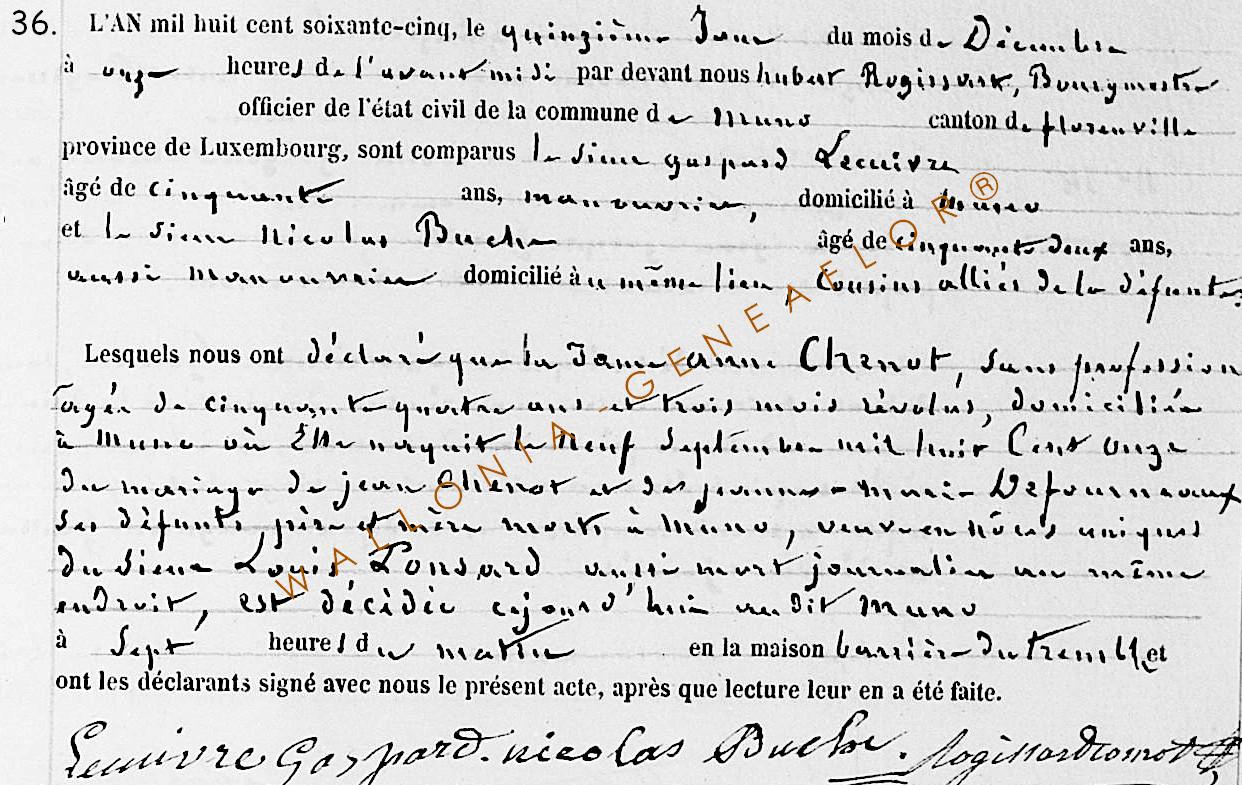 36. L'AN mil huit cent soixante-cinq, le quinzième Jour du mois de Décembre
à onze heures de l'avant midi par devant nous hubert Rogissart, Bourgmestre
officier de l'état civil de la commune de Muno canton de florenville
province de Luxembourg, sont comparus le sieur gaspard Lecuivre
âgé de cinquante ans, manouvrier, domicilié à Muno
et le sieur Nicolas Buche âgé de cinquante deux ans,
aussi manouvrier domicilié au même lieu Cousins alliés de la défunte
Lesquels nous ont déclaré que la Dame anne Chenot, sans profession
agée de cinquante quatre ans et trois mois révolus, domiciliée
à Muno où Elle naquit le Neuf Septembre mil huit Cent onze
du mariage de jean Chenot et de jeanne-Marie Defourneaux
ses défunts père et mère morts à Muno, veuve en Nôces uniques
du sieur Louis Ponsard aussi mort journalier au même
endroit, est décédée cejourd'hui au dit Muno
à Sept heures du matin en la maison barrière du et
ont les déclarants signé avec nous le présent acte, après que lecture leur en a été faite.
Lecuivre Gaspard. nicolas Buche.
WALLONIA-GENEAELOR®